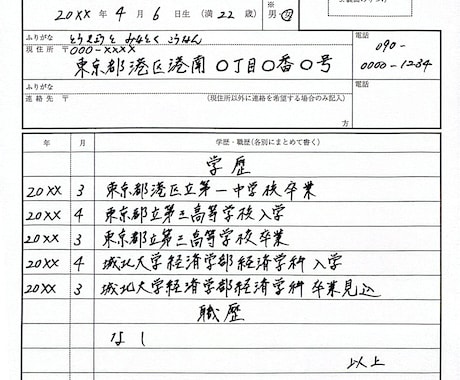 20XX年 4月 6日生 (満 22歳) ※ 男・女
ふりがな とうきょうと みなとく こうなん 電話
現住所 〒 000-XXXX 090-
東京都港区港南〇丁目〇番〇号 0000-1234
ふりがな 電話
連絡先 〒 (現住所以外に連絡を希望する場合のみ記入)
方
年 月 学歴・職歴(各別にまとめて書く)
学歴
20XX 3 東京都港区立第一中学校卒業
20XX 4 東京都立第三高等学校入学
20XX 3 東京都立第三高等学校卒業
20XX 4 城北大学経済学部経済学科 入学
20XX 3 城北大学経済学部経済学科 卒業見込
職歴
なし
以上